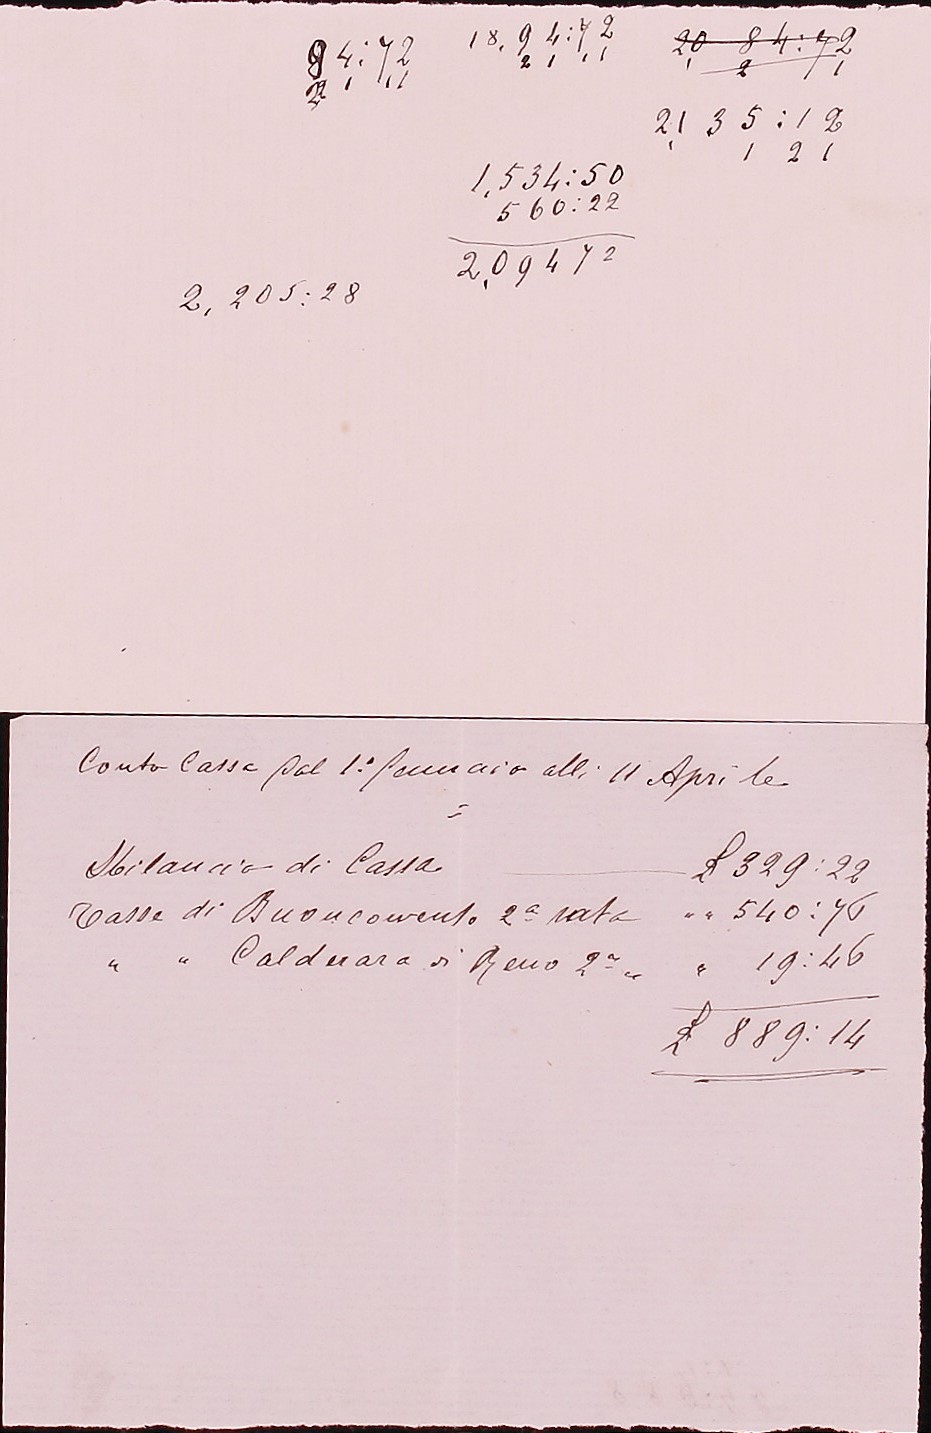 94:72 18,94:72 20 84:72
22 1 11 2 1 11 2 1
21 35:12
1 2 1
1,534:50
560:22
2,09472
2,205:28
Conto Cassa dal 1.° Gennaio alli 11 Aprile
=
Sbilancio di Cassa £ 329:22
Tasse di Buonconvento 2ª rata " " 540:76
" " Calderara di Reno 2ª " " 19:46
£ 889:14